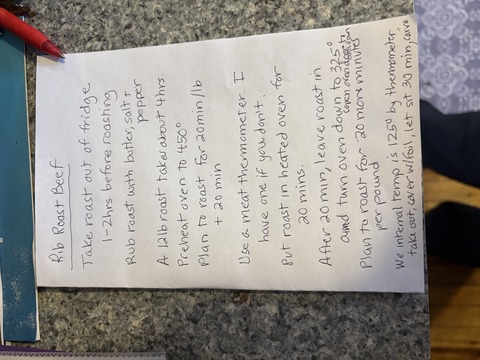 Rib Roast Beef
Take roast out of fridge
1-2hrs before roasting
Rub roast with butter, salt +
pepper
A 12lb roast takes about 4hrs
Preheat oven to 450°
Plan to roast for 20min/lb
+ 20 min
Use a meat thermometer. I
have one if you don't.
Put roast in heated oven for
20 mins.
After 20 min, leave roast in
and turn oven down to 325°
Plan to roast for 20 more minutes
per pound
We internal temp is 125° by thermometer,
take out, cover w/foil, let sit 30 min, carve